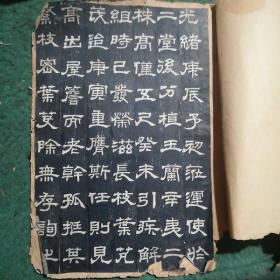 光緒庚辰予初蒞運使於
二堂後方植玉蘭辛夷二
株高僅五尺癸未引疾解
組時已發榮滋長枝葉芃
茂迨庚寅重膺斯任則見
高出屋簷而老幹孤挺其
繁枝密葉芟除無存詢之